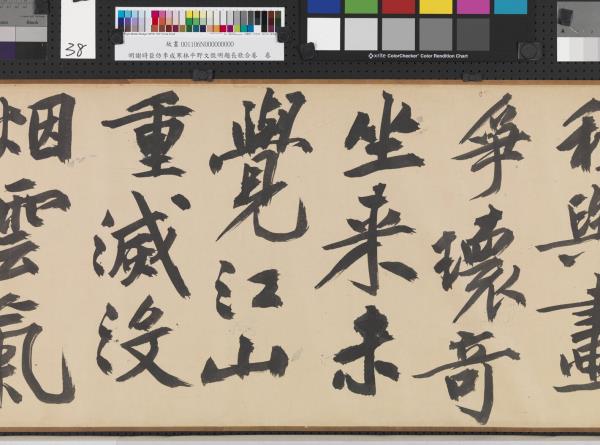 38
故畫 001106N000000000
明謝時臣仿李成寒林平野文徵明題長歌合卷 卷
x-rite ColorChecker® Color Rendition Chart
Black
與畫
爭壞奇
坐来未
覺江山
重滅没
烟雲氣